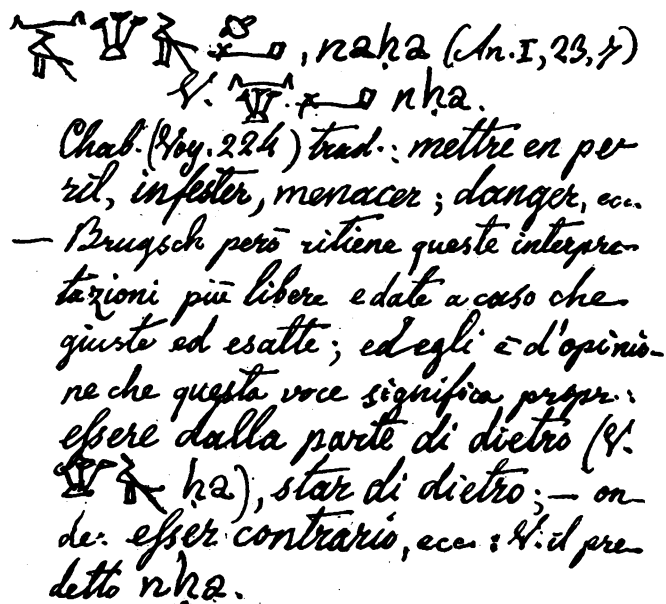 , naḥa (An. I, 23, 7)
V. nḥa.
Chab. (Voy. 224) trad.: mettre en pe-
ril, infester, menacer; danger, ecc.
— Brugsch però ritiene queste interpre-
tazioni più libere e date a caso che
giuste ed esatte; ed egli è d'opinio-
ne che questa voce significa propr.:
essere dalla parte di dietro (V.
ḥa), star di dietro; — on-
de: esser contrario, ecc.: V. il pre-
detto nḥa.